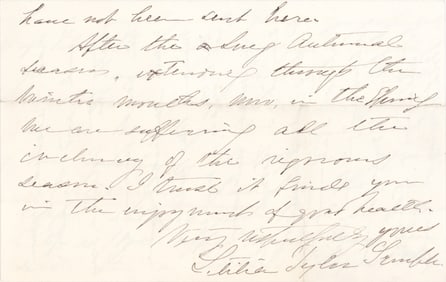 have not been sent here.
After the a long Autumnal
season, extending through the
Winter months, now, in the Spring
we are suffering all the
inclemency of the rigorous
season. I trust it finds you
in the enjoyment of good health.
Very respectfully yours
Letitia Tyler Semple